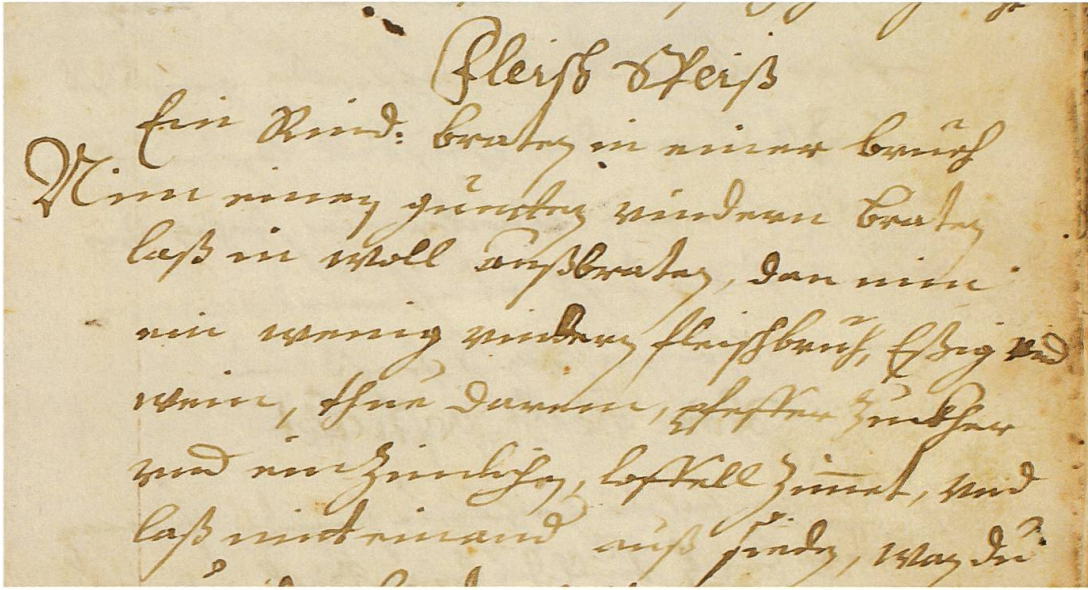 Fleisch Speiß
Ein Rind: braten in einer brueh
Nim einen guetten rindern braten
laß in woll außbraten, dan nim
ein wenig rindern fleischbrueh, Essig und
wein, thue darein, pfeffer Zuckher
und ein Zimlichen, loffell Zimet, und
laß mit einand auß sieden, wan du